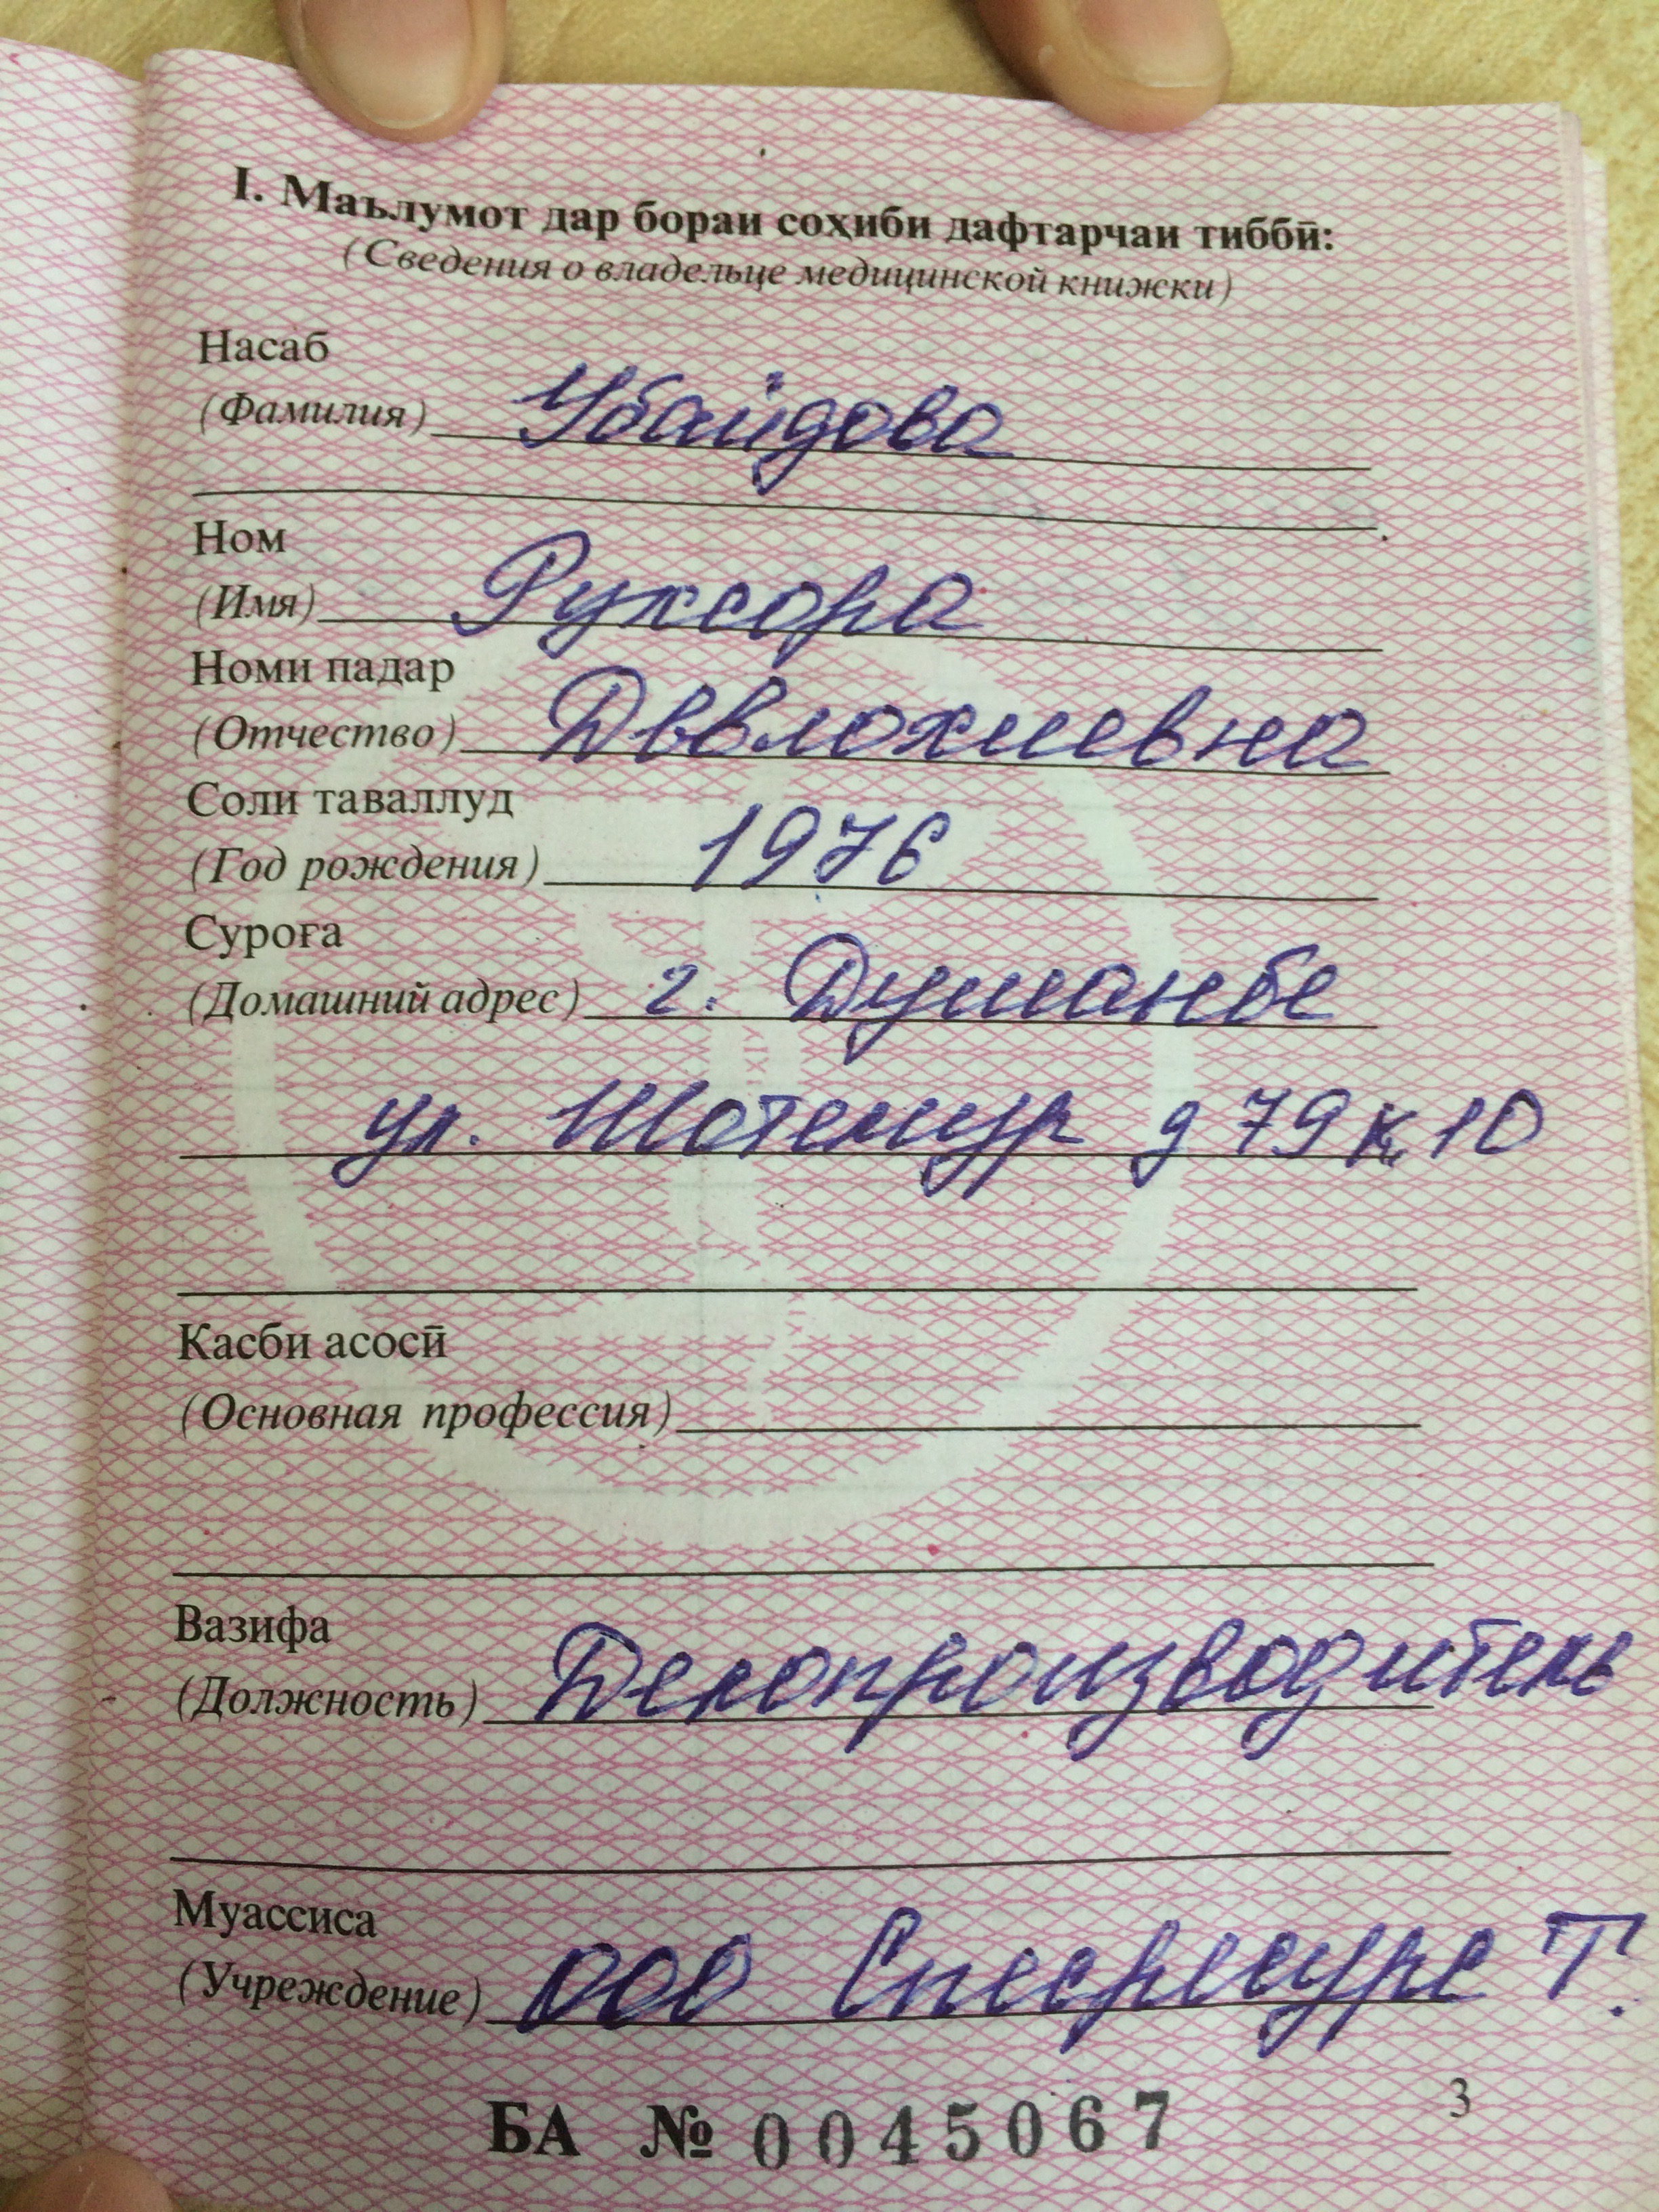 I. Маълумот дар бораи соҳиби дафтарчаи тиббӣ:
(Сведения о владельце медицинской книжки)
Насаб
(Фамилия) Убайдова
Ном
(Имя) Рухсора
Номи падар
(Отчество)
Соли таваллуд
(Год рождения) 1976
Суроға
(Домашний адрес) г. Душанбе
ул. Шотемур д 79 к 10
Касби асосӣ
(Основная профессия)
Вазифа
(Должность) Делопроизводитель
Муассиса
(Учреждение) ООО Т.
БА № 0045067
3